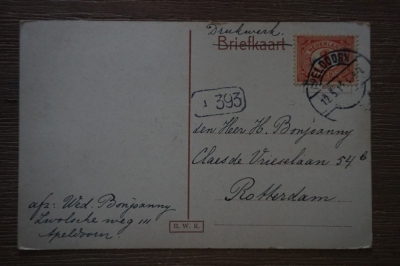 Drukwerk.
Briefkaart
APELDOORN
1 393
den Heer H. Bonjpanny
Claes de Vrieselaan 54 b
Rotterdam.
afz: Wed. Bonjpanny
Zwolsche weg 111
Apeldoorn.